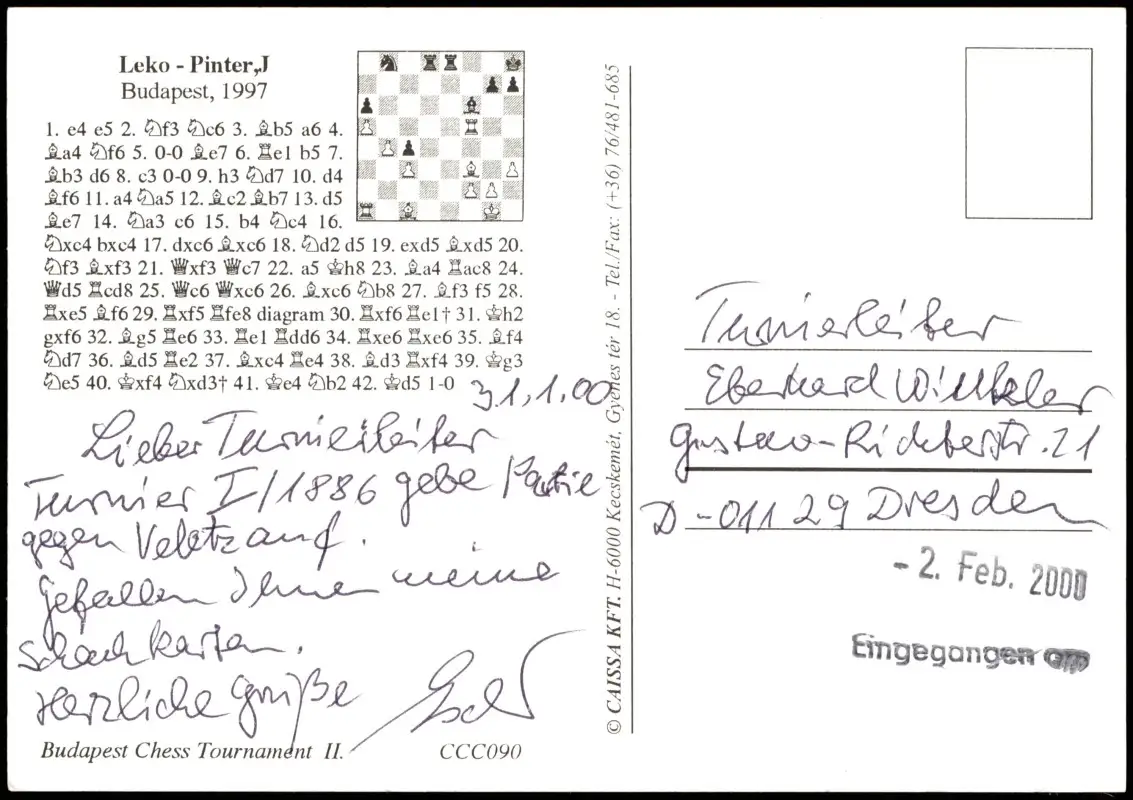 Leko - Pinter,J
Budapest, 1997
1. e4 e5 2. ♘f3 ♘c6 3. ♗b5 a6 4.
♗a4 ♘f6 5. 0-0 ♗e7 6. ♖e1 b5 7.
♗b3 d6 8. c3 0-0 9. h3 ♘d7 10. d4
♗f6 11. a4 ♘a5 12. ♗c2 ♗b7 13. d5
♗e7 14. ♘a3 c6 15. b4 ♘c4 16.
♘xc4 bxc4 17. dxc6 ♗xc6 18. ♘d2 d5 19. exd5 ♗xd5 20.
♘f3 ♗xf3 21. ♕xf3 ♕c7 22. a5 ♔h8 23. ♗a4 ♖ac8 24.
♕d5 ♖cd8 25. ♕c6 ♕xc6 26. ♗xc6 ♘b8 27. ♗f3 f5 28.
♖xe5 ♗f6 29. ♖xf5 ♖fe8 diagram 30. ♖xf6 ♖e1† 31. ♔h2
gxf6 32. ♗g5 ♖e6 33. ♖e1 ♖dd6 34. ♖xe6 ♖xe6 35. ♗f4
♘d7 36. ♗d5 ♖e2 37. ♗xc4 ♖e4 38. ♗d3 ♖xf4 39. ♔g3
♘e5 40. ♔xf4 ♘xd3† 41. ♔e4 ♘b2 42. ♔d5 1-0
31.1.00
Lieber Turnierleiter
Turnier I/1886 gebe Partie
gegen auf.
Gefallen Ihnen meine
Schachkarten.
Herzliche Grüße
Budapest Chess Tournament II.
CCC090
© CAISSA KFT. H-6000 Kecskemét, Gyenes tér 18. - Tel./Fax: (+36) 76/481-685
Turnierleiter
Eberhard
Gustav-Richterstr. 21
D-01129 Dresden
- 2. Feb. 2000
Eingegangen am